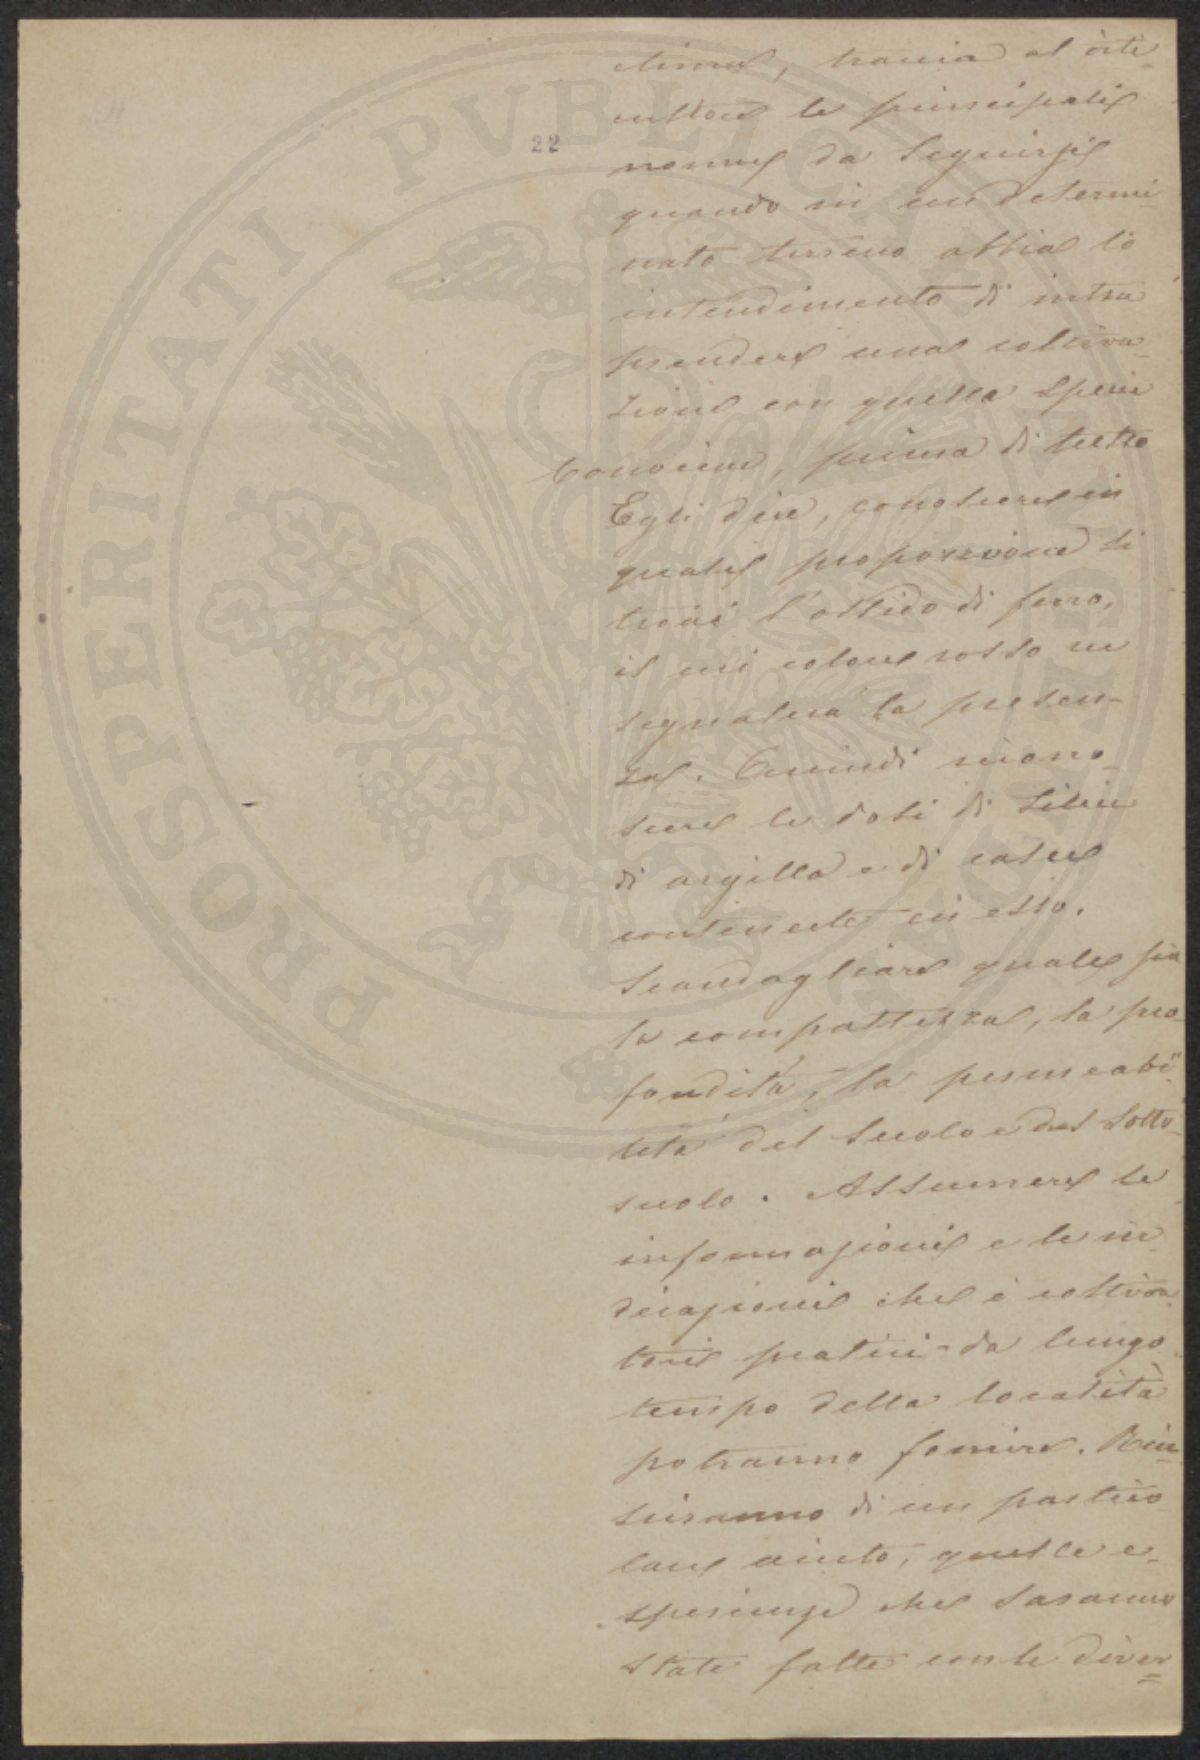 traccia al viti-
cultore le principali
22
norme da seguirsi
quando in un determi
nato terreno abbia lo
intendimento di intra
prendere una coltiva-
zione con quella specie
Conviene, prima di tutto
Egli dice, conoscere in
quale proporzione si
trovi l'ossido di ferro,
il cui colore rosso ne
segnalerà la presen-
za. Quindi ricono-
scere le dosi di silice
di argilla e di calce
contenute in esso.
Scandagliare quale sia
la compattezza, la pro-
fondità, la permeabi-
lità del suolo e del sotto-
suolo. Assumere le
informazioni e le in-
dicazioni che i coltiva-
tori pratici da lungo
tempo della località
potranno fornire. Riu-
sciranno di un partico-
lare aiuto, quelle e-
sperienze che saranno
state fatte con le diver=
PROSPERITATI PVBLICAE